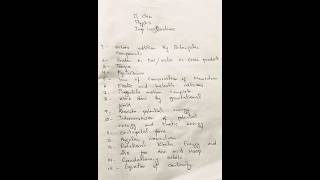 Physics
Imp long Questions
1- vectors addition by Rectangular
Components
3- Torque
5- Law of Conservation of Momentum
6- Elastic and inelastic collision
7- Projectile motion complete
8- Work done by gravitational
field
9- Absolute potential energy
10- Interconversion of potential
energy and kinetic energy
11- Centripetal force
12- Angular momentum
13- Rotational Kinetic Energy and
disc and Hoop
14- Geostationary orbits
15- Equation of Continuity